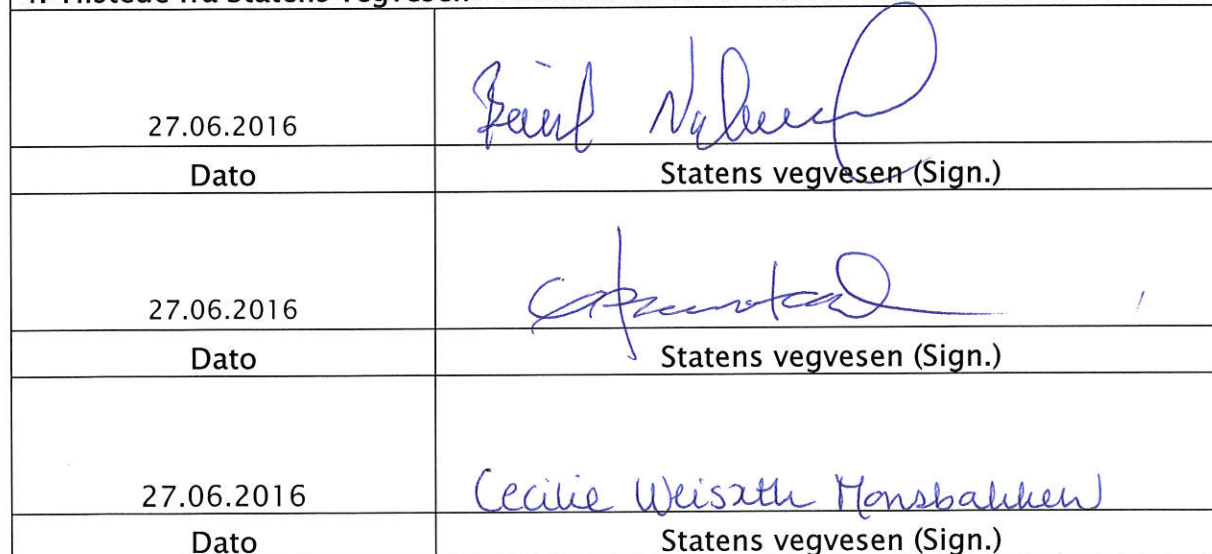 Statens vegvesen
27.06.2016
Dato Statens vegvesen (Sign.)
27.06.2016
Dato Statens vegvesen (Sign.)
27.06.2016 Cecilie Weisæth Monsbakken
Dato Statens vegvesen (Sign.)